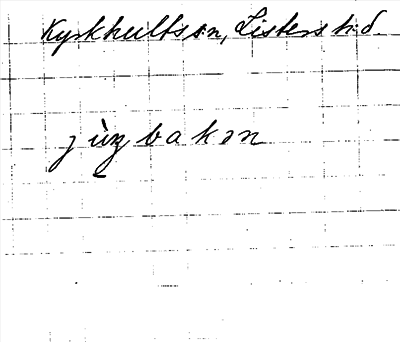 Kyrkhultssn, Listers hd.
jùŋbakən